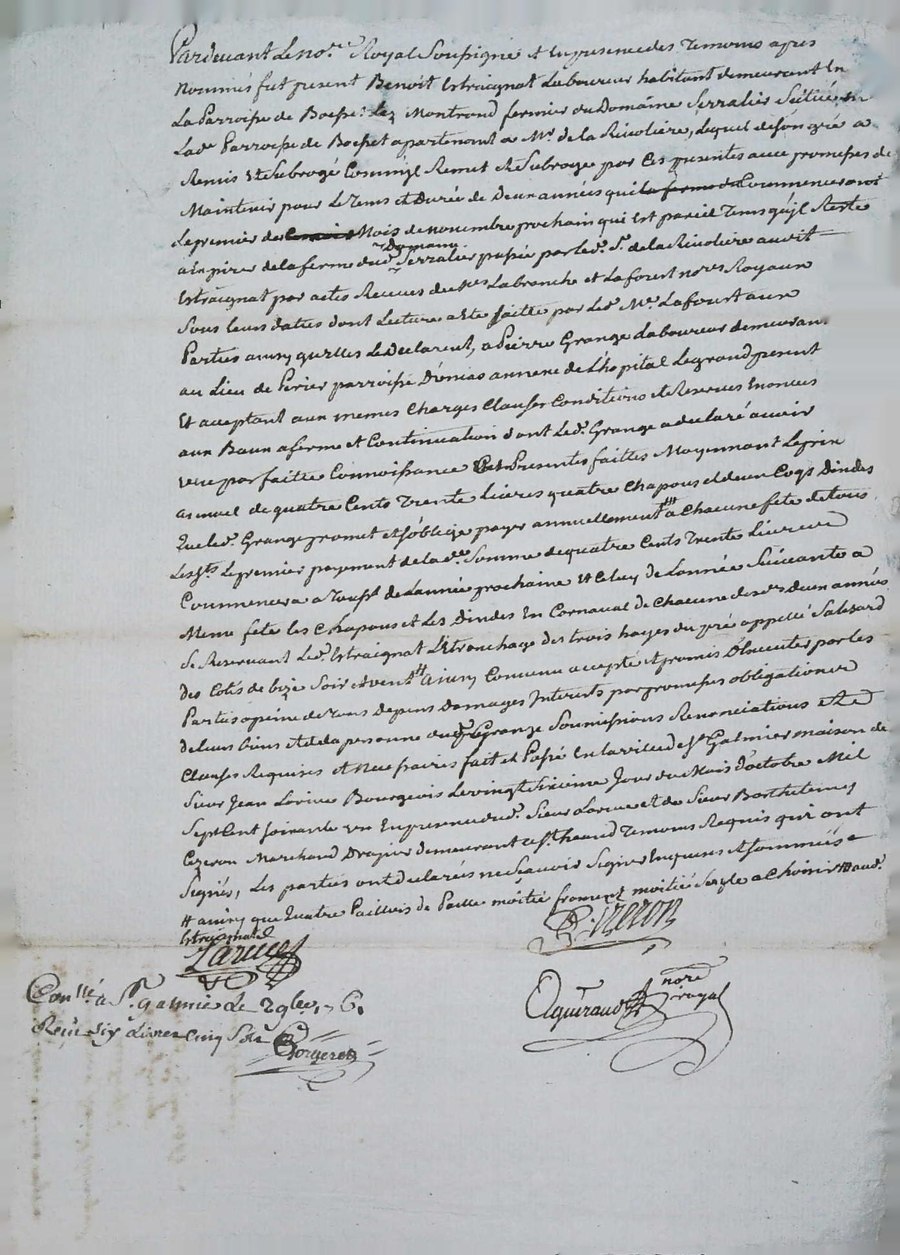 Pardevant Le no.re Royal Soussigné et en presence des Temoins apres
Nommés fut present Benoit Estraignat Laboureur habitant demeurant En
La Parroisse de Boisset Lez Montrond fermier du Domaine Serralier Scitué en
Lad.e Parroisse de Boisset apartenant a Mr. de la Rivoliere, Lequel de son gré a
Remis et Subrogé Comme il Remet et Subroge par Ces presentes avec promesses de
Maintenir pour Le Tems et Durée de Deux années qui la ferme de Commenceront
Le premier de Mois de novembre prochain qui Est pareil Tems qu'il Reste
a Expirer de la ferme dud. Domaine Serralier passée par led. Sr. de la Rivoliere audit
Estraignat par actes Receus de Mes Labranche et Laforest no.res Royaux
Sous leurs dattes dont Lecture a Eté faitte par Led. Me. Laforest aux
Parties ainsy qu'elles Le Declarent, a Pierre Grange Laboureur demeurant
au Lieu de Perier parroisse D'unias annexe de L'hopital Legrand present
Et acceptant aux memes Charges Clauses Conditions et Reserves Enoncés
aux Baux a ferme et Continuation dont Led. Grange a declaré avoir
une parfaitte Connoissance Ces Presentes faittes Moyennant Le prix
annuel de quatre Cents Trente Livres quatre Chapons et deux Coqs Dindes
que led. Grange promet et s'oblige payer annuellement a Chacune fete de tous
Les sts. Le premier payement de lad.e Somme de quatre Cents Trente Livres
Commencera a Touss.t de L'année prochaine et Celuy de L'année Suivante a
Meme fete les Chapons et Les Dindes En Carnaval de Chacune desd. deux années
Se Reservant Led. Estraignat L'Etronchage des trois hayes du pré appellé
des Cotés de bize Soir et vent ainsy Convenu accepté et promis D'Executer par les
Parties a peine de tous Depens Domages Interets par promesses obligation
de leurs biens et de la personne dud. Grange Soumissions Renonciations et
Clauses Requises et Necessaires fait et Passé En la ville de St. Galmier maison de
Sieur Jean Larive Bourgeois Le vingt Sixieme Jour du Mois d'octobre Mil
Sept Cent Soixante un En presence dud. Sieur Larive et de Sieur Barthelemy
Cizeron Marchand Drapier demeurant a St. heand Temoins Requis qui ont
Signés, Les parties ont declarés ne Scavoir Signer Enquis et Sommées
# ainsy que Quatre de Paille moitié froment moitié Segle a Choisir # aud.
Estraignat
Larive
B. Cizeron
Con.llé a St. galmier Le 9bre. 1761
Reçu six Livres cinq Sols
no.re royal